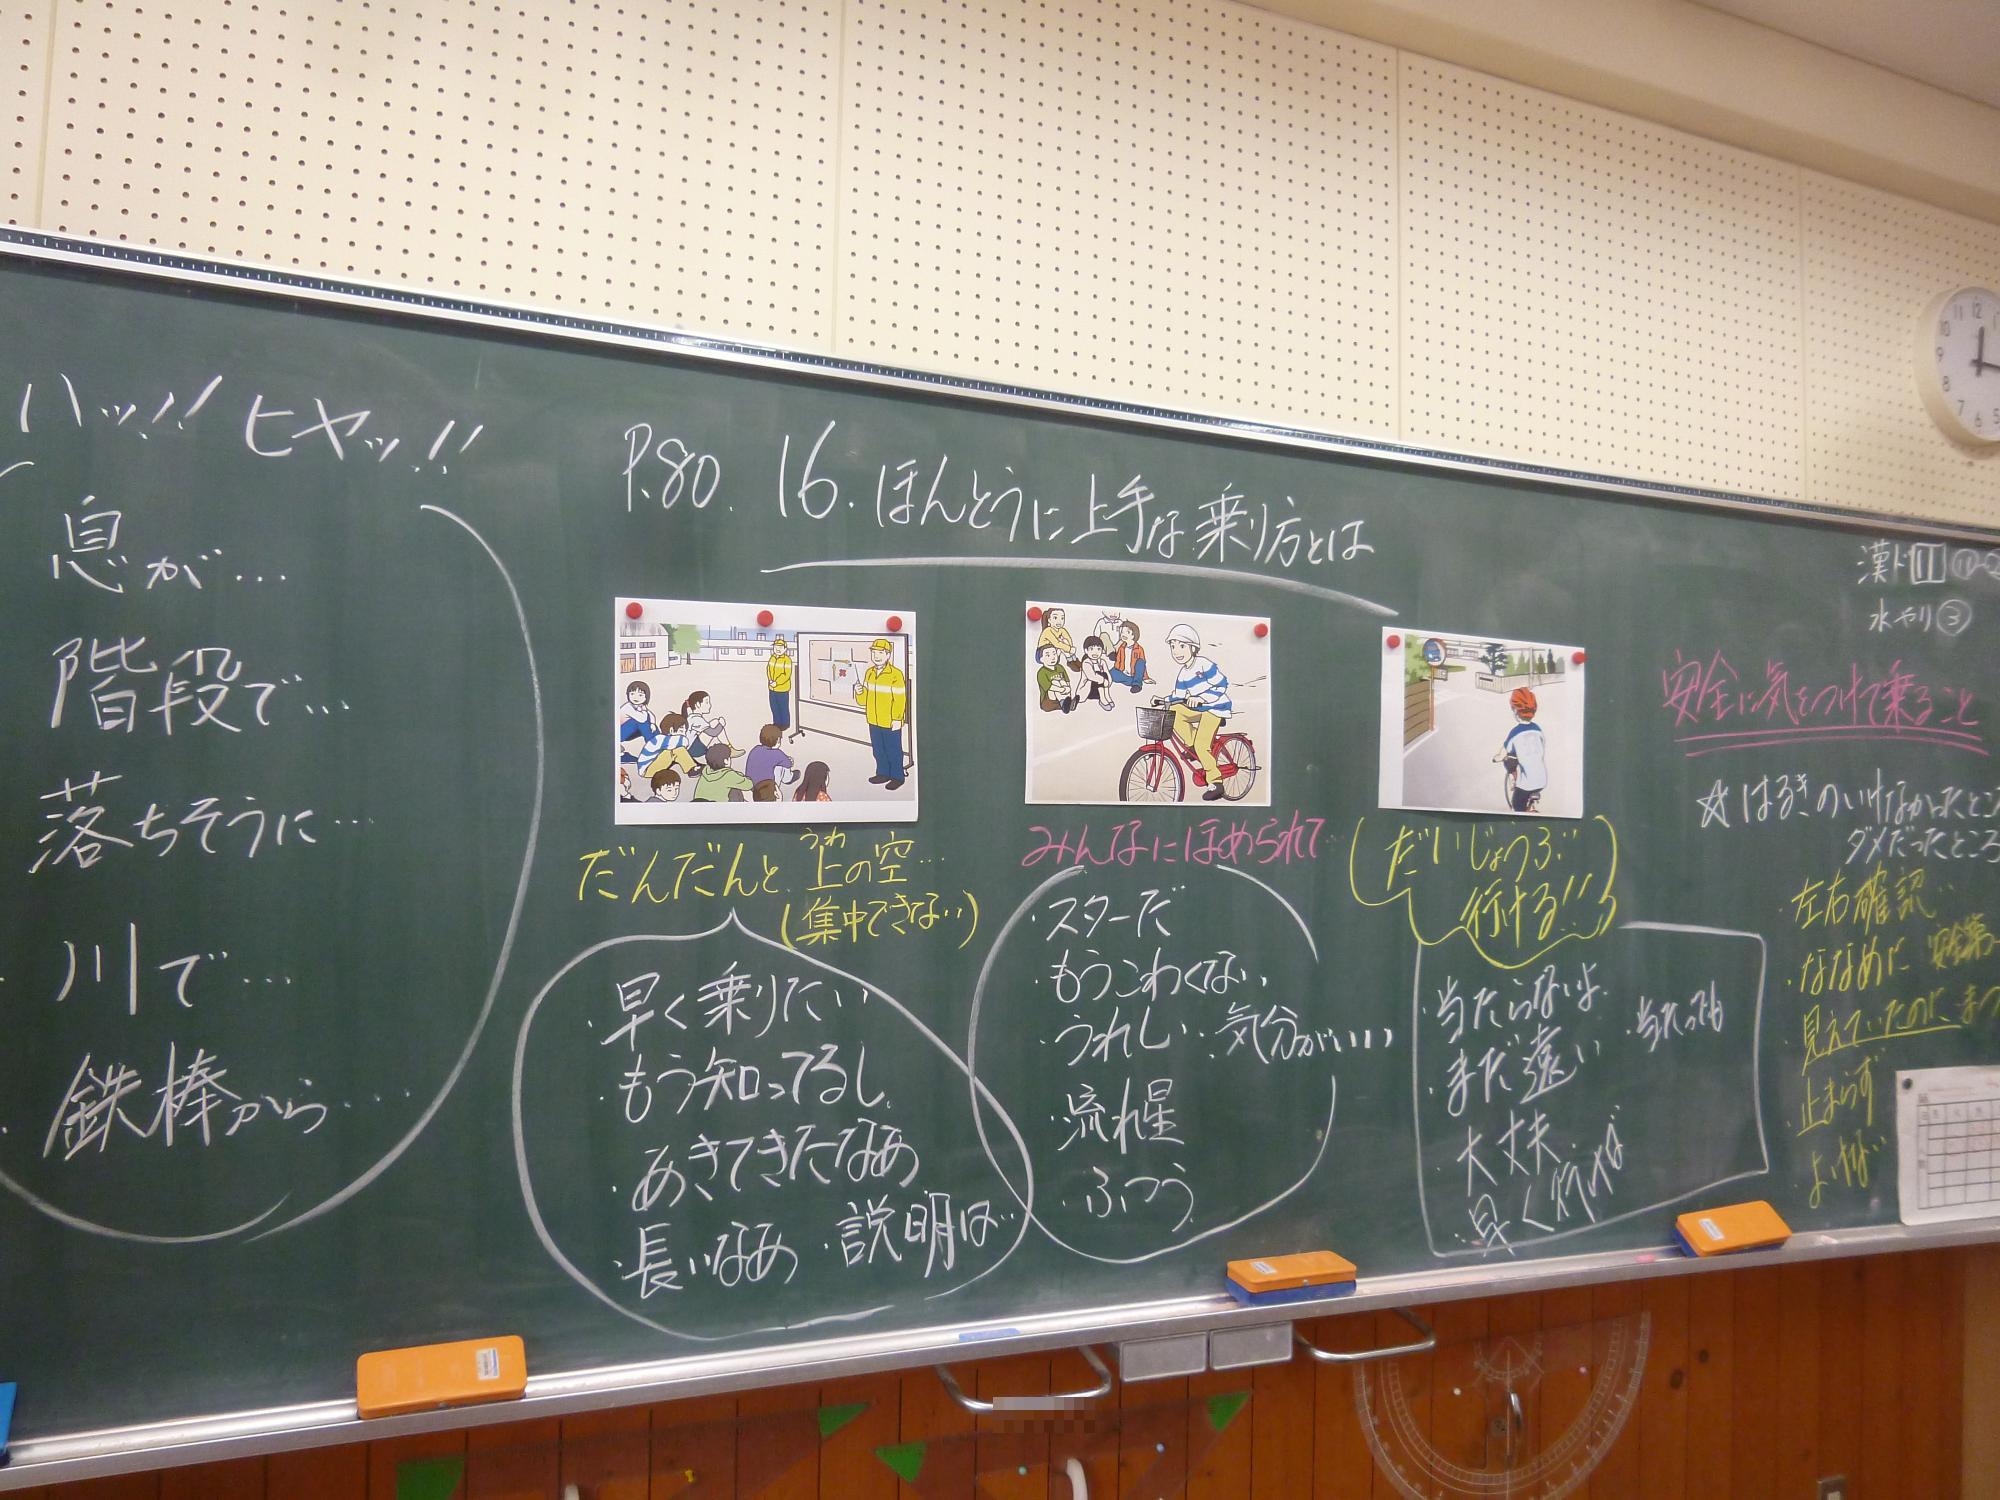 ハッ!! ヒヤッ!!
息が…
階段で…
落ちそうに…
川で…
鉄棒から…
P.80. 16.ほんとうに上手な乗り方とは
だんだんと上の空…
うわ
(集中できない)
・早く乗りたい
・もう知ってるし
・あきてきたなあ
・長いなあ ・説明は…
みんなにほめられて…
・スターだ
・もうこわくない
・うれしい ・気分がいい
・流れ星
・ふつう
(だいじょうぶ
行ける!!)
・当たらないよ ・当たっても
・まだ遠い
・大丈夫
・早く行けば
漢ド11
水やり③
安全に気をつけて乗ること
☆はるきのいけなかったところ
ダメだったところ
・左右確認
・ななめに
・見えていたのに
・止まらず
・よけれ
12
11
10
9
8
7
6
5